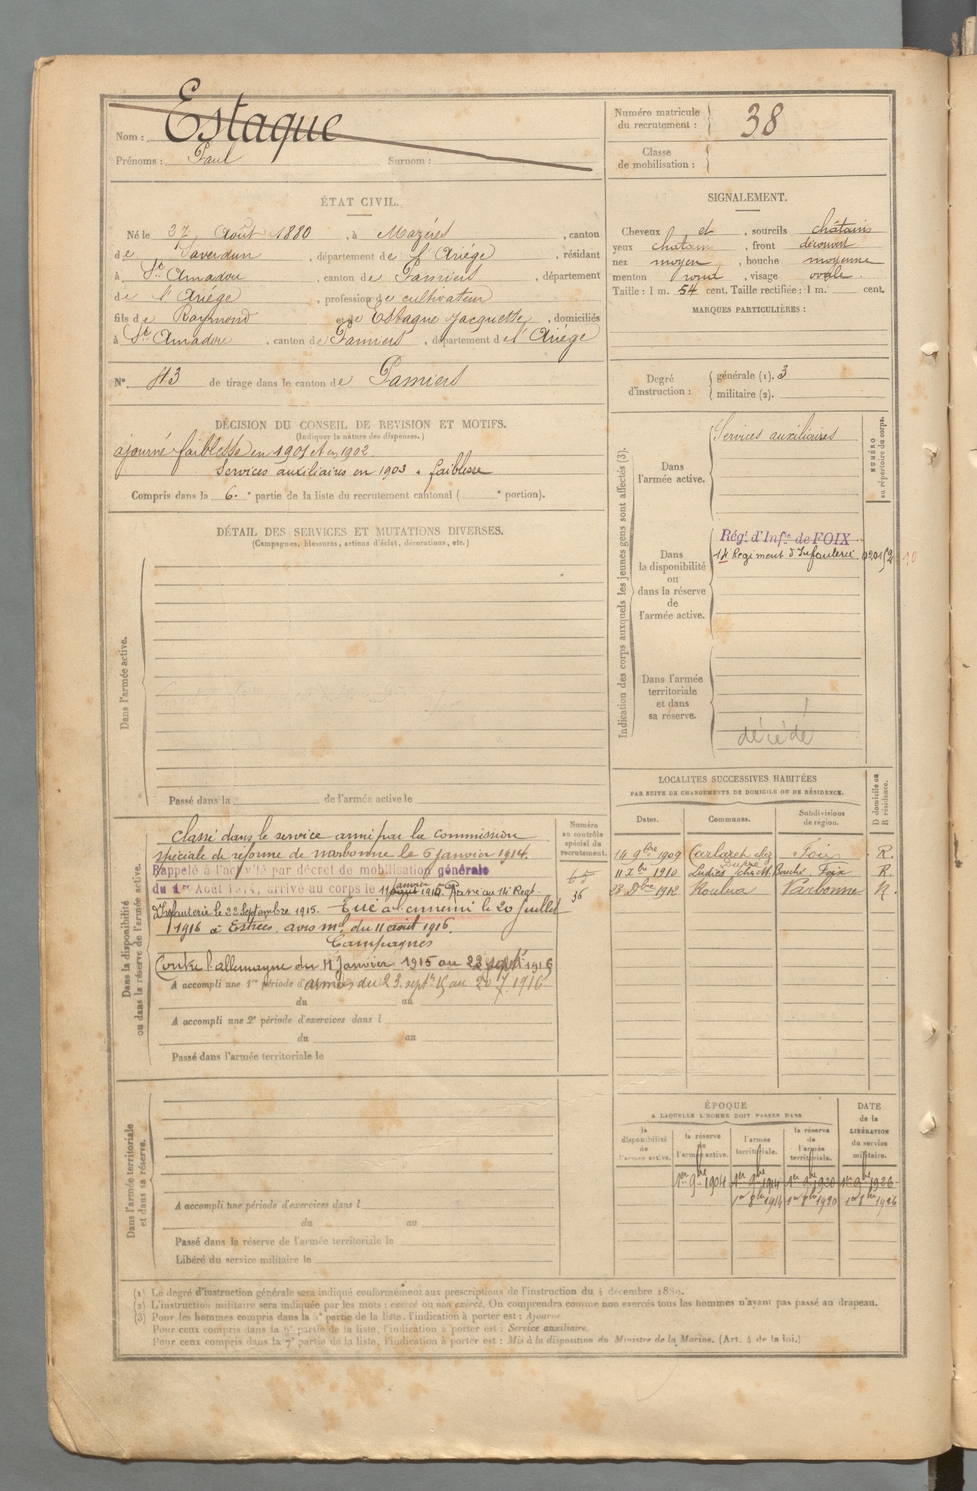 Nom : Estaque
Prénoms : Paul Surnom :
Numéro matricule
du recrutement : 38
Classe
de mobilisation :
ÉTAT CIVIL.
Né le 27 Août 1880, à Mazères, canton
de Saverdun, département de l'Ariége, résidant
à St Amadou, canton de Pamiers, département
de l'Ariége, profession de cultivateur
fils de Raymond et de Estaque Jacquette, domiciliés
à St Amadou, canton de Pamiers, département de l'Ariége
N° 43 de tirage dans le canton de Pamiers
SIGNALEMENT.
Cheveux et, sourcils châtains
yeux chatain, front découvert
nez moyen, bouche moyenne
menton rond, visage ovale.
Taille : 1 m. 54 cent. Taille rectifiée : 1 m. cent.
MARQUES PARTICULIÈRES :
Degré
d'instruction :
générale (1). 3
militaire (2).
DÉCISION DU CONSEIL DE REVISION ET MOTIFS.
(Indiquer la nature des dispenses.)
ajourné faiblesse en 1901 et en 1902
Services auxiliaires en 1903 faiblesse
Compris dans la 6e partie de la liste du recrutement cantonal ( e portion).
DÉTAIL DES SERVICES ET MUTATIONS DIVERSES.
(Campagnes, blessures, actions d'éclat, décorations, etc.)
Dans l'armée active.
Passé dans la de l'armée active le
Indication des corps auxquels les jeunes gens sont affectés (3).
NUMÉRO
au répertoire du corps.
Dans
l'armée active.
Services auxiliaires
Dans
la disponibilité
ou
dans la réserve
de
l'armée active.
Régt d'Infie de FOIX
14 Régiment d'Infanterie
Dans l'armée
territoriale
et dans
sa réserve.
décédé
Dans la disponibilité
ou dans la réserve de l'armée active.
Numéro
au contrôle
spécial du
recrutement.
65
36
Classé dans le service armé par la commission
spéciale de réforme de narbonne le 6 janvier 1914.
Rappelé à l'activité par décret de mobilisation générale
du 1er Août 1914, arrivé au corps le 11 janvier 1915. Passé au 14e Regt
d'Infanterie le 22 Septembre 1915. Tué à l'ennemi le 20 juillet
1916 à Estrées, avis ml du 11 août 1916.
Campagnes
Contre l'allemagne du 11 Janvier 1915 au 22 septbre 1915
A accompli une 1re période d'
armées du 23 septbre 15 au 20.7.1916
du au
A accompli une 2e période d'exercices dans l
du au
Passé dans l'armée territoriale le
LOCALITÉS SUCCESSIVES HABITÉES
PAR SUITE DE CHANGEMENTS DE DOMICILE OU DE RÉSIDENCE.
D domicile ou
R résidence.
Dates. Communes. Subdivisions
de région.
14 9bre 1909 Carlaret chez Foix R.
11 Xbre 1910 Ludiès Foix R.
28 Xbre 1912 Narbonne R.
Dans l'armée territoriale
et dans sa réserve.
A accompli une période d'exercices dans l
du au
Passé dans la réserve de l'armée territoriale le
Libéré du service militaire le
ÉPOQUE
A LAQUELLE L'HOMME DOIT PASSER DANS
DATE
de la
LIBÉRATION
du service
militaire.
la
disponibilité
de
l'armée active.
la réserve
de
l'armée active.
l'armée
territoriale.
la réserve
de
l'armée
territoriale.
1er 9bre 1904 1er 9bre 1914 1er 9bre 1920 1er 9bre 1926
1er 8bre 1914 1er 8bre 1920 1er 8bre 1926
(1) Le degré d'instruction générale sera indiqué conformément aux prescriptions de l'instruction du 4 décembre 1889.
(2) L'instruction militaire sera indiquée par les mots : exercé ou non exercé. On comprendra comme non exercés tous les hommes n'ayant pas passé au drapeau.
(3) Pour les hommes compris dans la 5e partie de la liste, l'indication à porter est : Ajourné.
Pour ceux compris dans la 6e partie de la liste, l'indication à porter est : Service auxiliaire.
Pour ceux compris dans la 7e partie de la liste, l'indication à porter est : Mis à la disposition du Ministre de la Marine. (Art. 4 de la loi.)